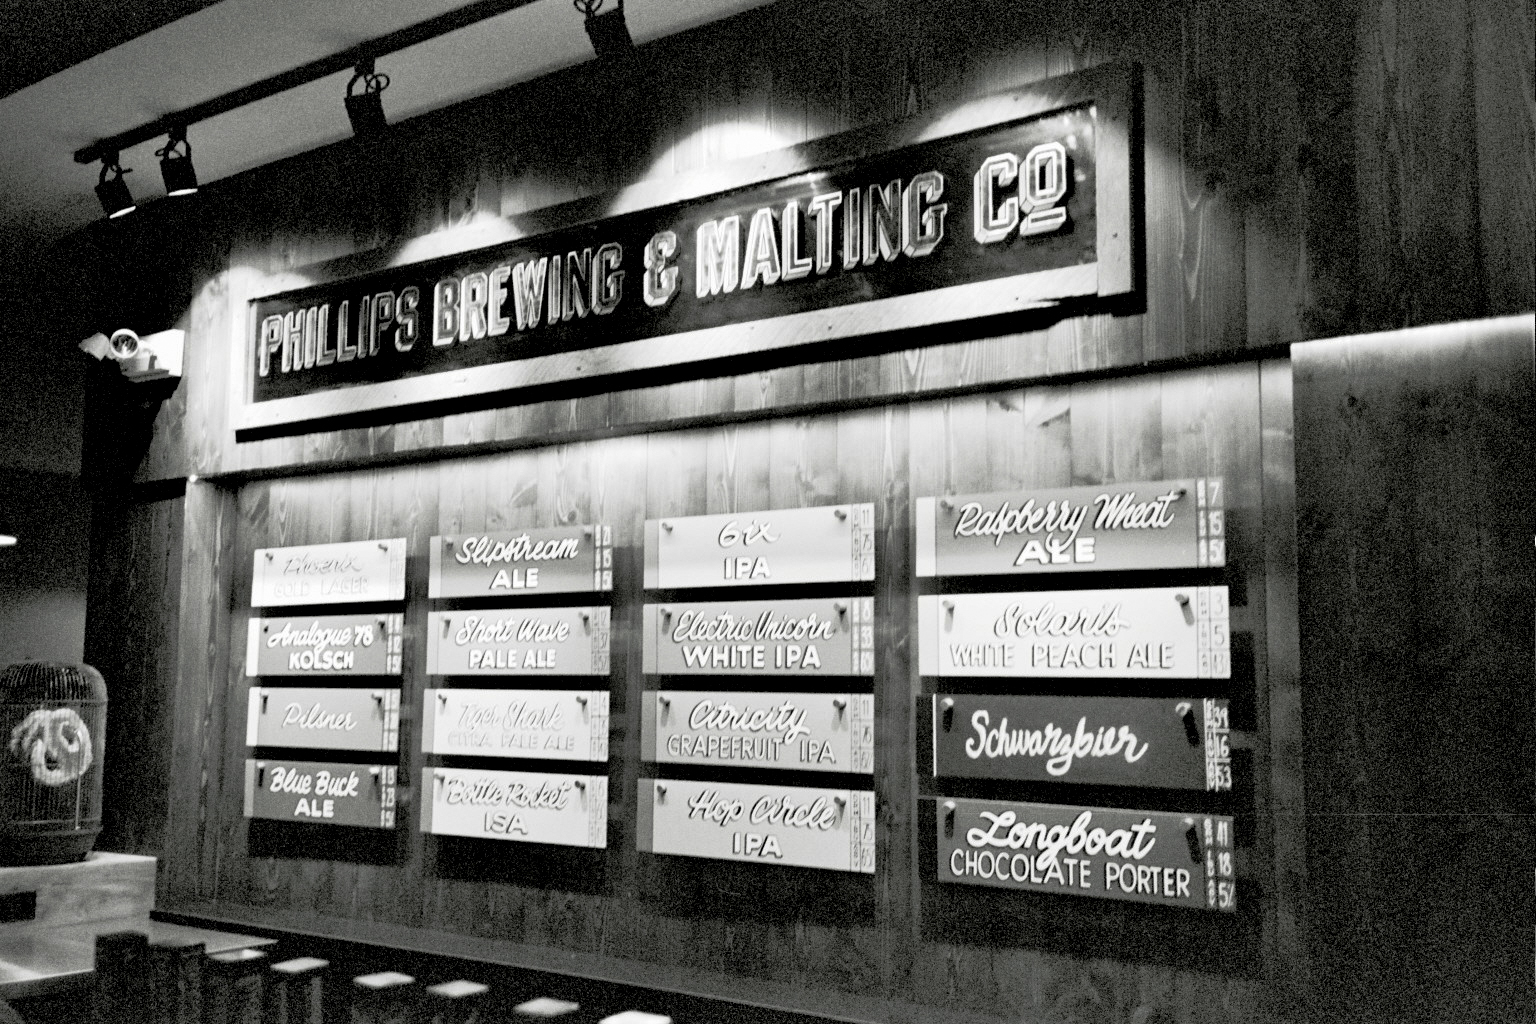 PHILLIPS BREWING & MALTING Co
Phoenix
GOLD LAGER
Analogue 78
KOLSCH
Pilsner
Blue Buck
ALE
Slipstream
ALE
Short Wave
PALE ALE
Tiger Shark
CITRA PALE ALE
Bottle Rocket
ISA
6ix
IPA
Electric Unicorn
WHITE IPA
Citricity
GRAPEFRUIT IPA
Hop Circle
IPA
Raspberry Wheat
ALE
7
15
Solaris
WHITE PEACH ALE
Schwarzbier
Longboat
CHOCOLATE PORTER
41
18